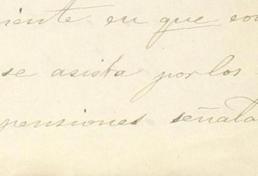 iente en que con
se asista por los
pensiones señala